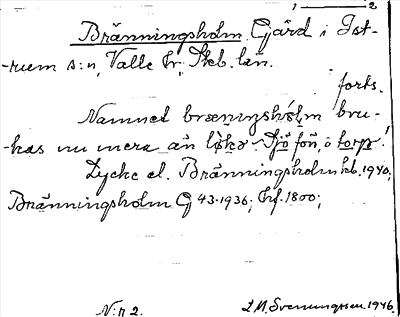 1 — 2
Bränningsholm Gård i Ist-
-rum s:n, Valle hr, Skb. län.
forts.
Namnet bræningshólm bru-
-kas nu mera än løkə
Lycke el. Bränningsholm kb. 1940;
Bränningsholm G 43. 1936; Erf. 1800;
N:r 2. L.M. Svenungsson. 1946.